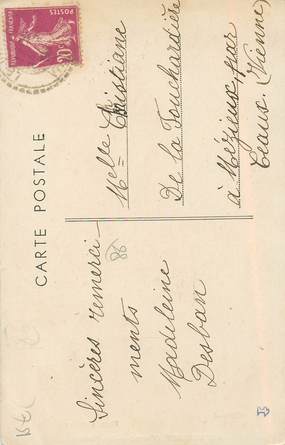 CARTE POSTALE
POSTES
REPUBLIQUE FRANÇAISE
20c
Sincères remerci-
ments
Madeleine
Desban
86
Melle Christiane
De la Touchardière
à Mézieux, par
Ceaux (Vienne)